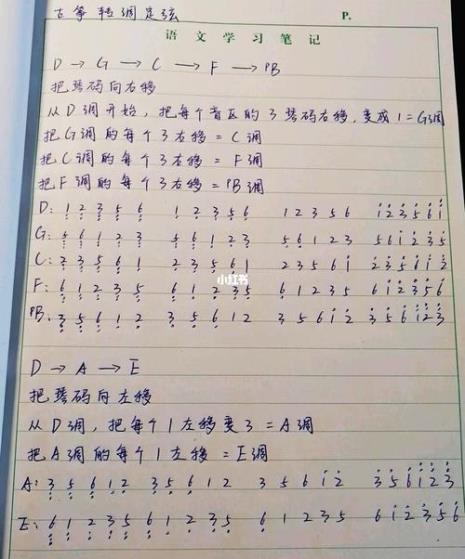 古筝转调定弦 P.
语文学习笔记
D → G → C → F → ♭B
把琴码向右移
从D调开始，把每个音区的3琴码右移，变成1=G调
把G调的每个3右移=C调
把C调的每个3右移=F调
把F调的每个3右移=♭B调
D: 1 2 3 5 6 1 2 3 5 6 1 2 3 5 6 1 2 3 5 6 1
G: 5 6 1 2 3 5 6 1 2 3 5 6 1 2 3 5 6 1 2 3 5
C: 2 3 5 6 1 2 3 5 6 1 2 3 5 6 1 2 3 5 6 1 2
小红书
F: 6 1 2 3 5 6 1 2 3 5 6 1 2 3 5 6 1 2 3 5 6
♭B: 3 5 6 1 2 3 5 6 1 2 3 5 6 1 2 3 5 6 1 2 3
D → A → E
把琴码向左移
从D调，把每个1左移变3=A调
把A调的每个1左移=E调
A: 3 5 6 1 2 3 5 6 1 2 3 5 6 1 2 3 5 6 1 2 3
E: 6 1 2 3 5 6 1 2 3 5 6 1 2 3 5 6 1 2 3 5 6